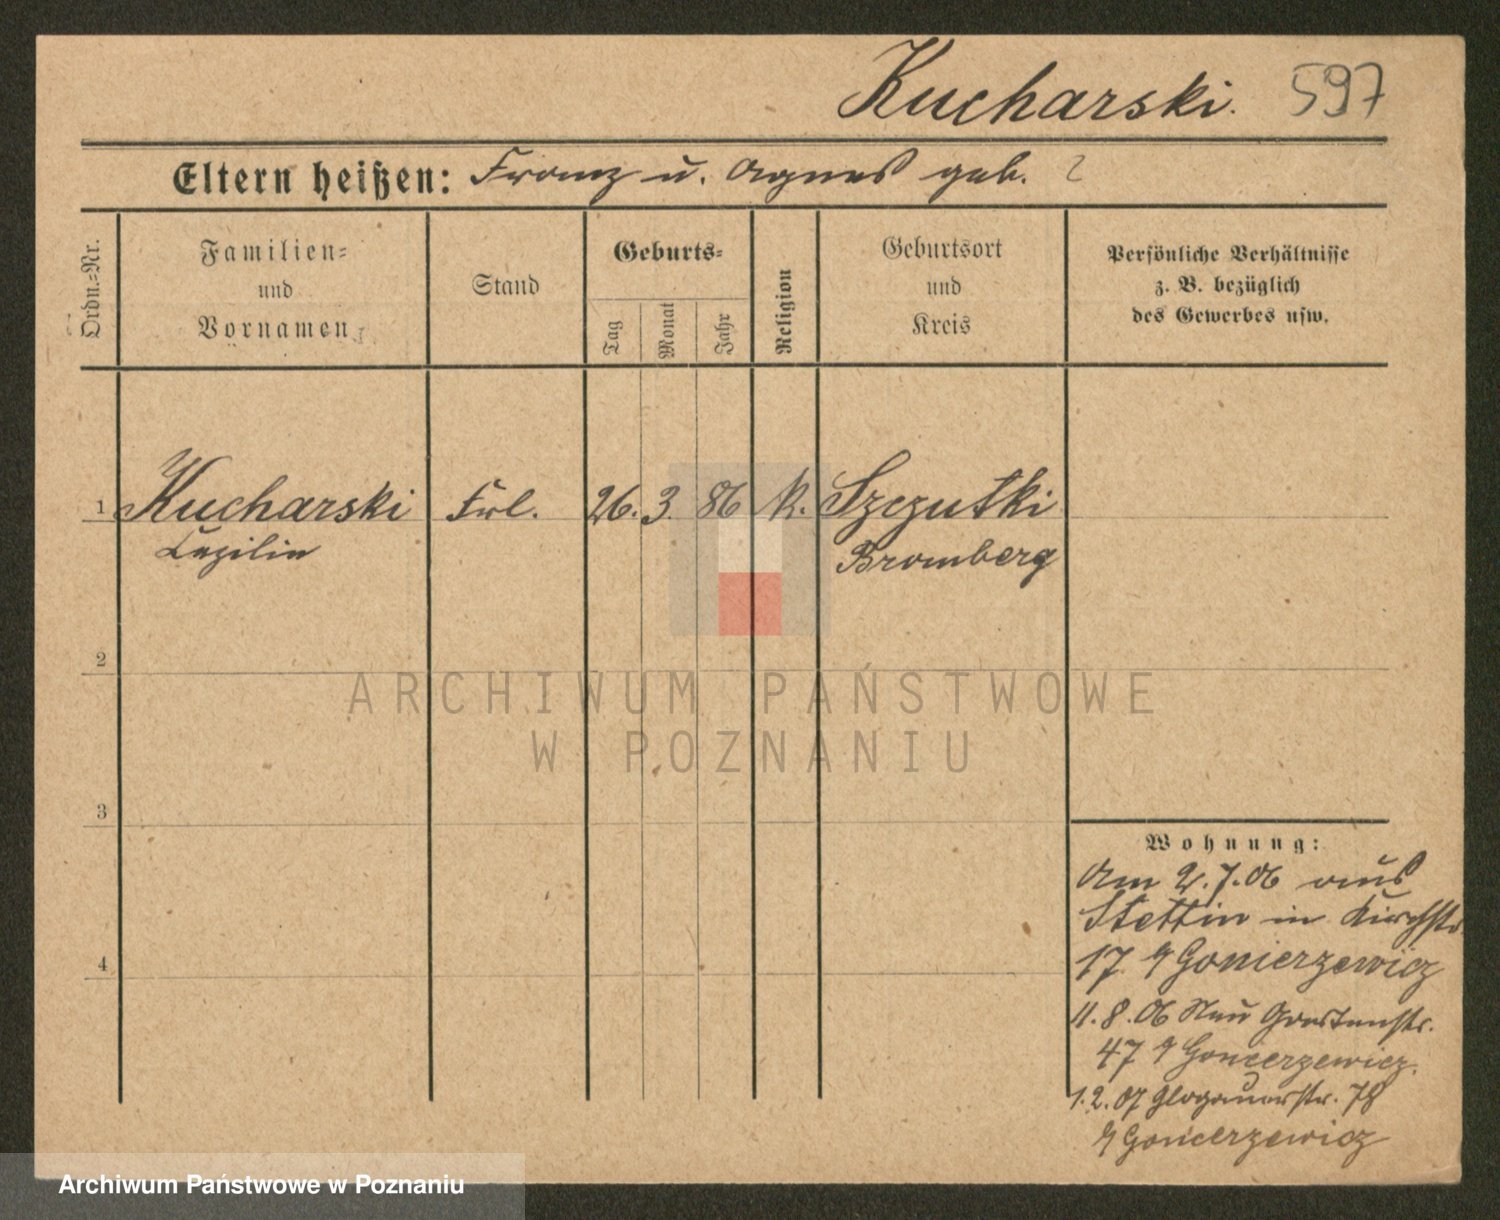 Kucharski. 597
Eltern heißen: Franz u. Agnes geb. ?
Ordn.=Nr.
Familien=
und
Vornamen
Stand
Geburts=
Tag
Monat
Jahr
Religion
Geburtsort
und
Kreis
Persönliche Verhältnisse
z. B. bezüglich
des Gewerbes usw.
1 Kucharski Frl. 26. 3. 86 k. Szczutki
Cezilie Bromberg
2
ARCHIWUM PAŃSTWOWE
W POZNANIU
3
Wohnung:
Am 2.7.06 aus
Stettin in Kirchstr.
17
4
11.8.06 Neu Gartenstr.
47 Goncerzewicz.
1.2.07 Glogauerstr. 78
Goncerzewicz
Archiwum Państwowe w Poznaniu